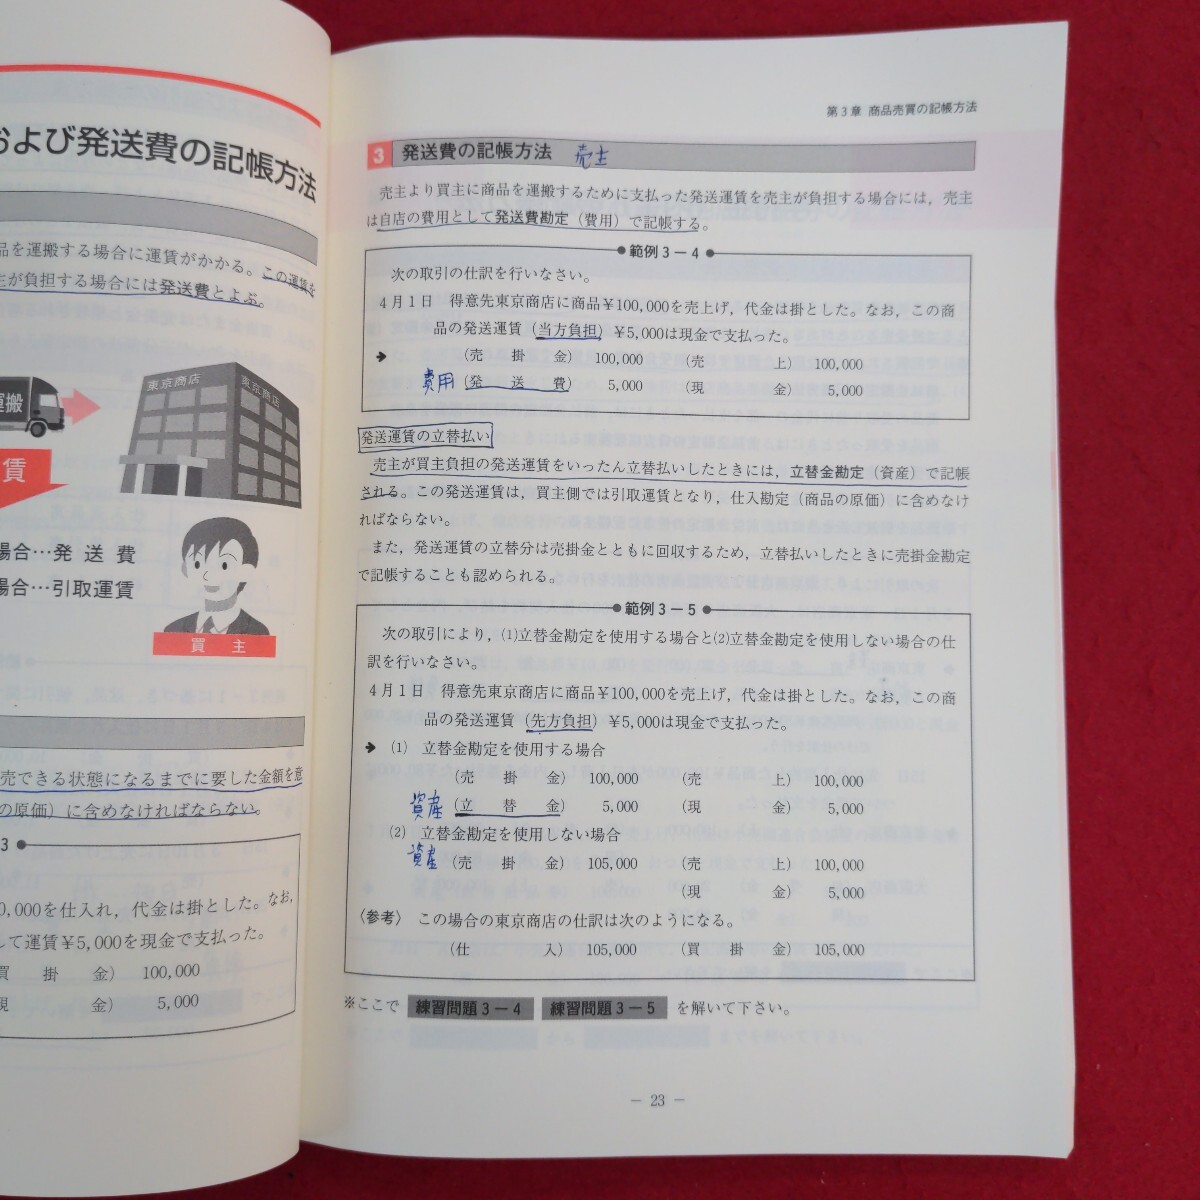 および発送費の記帳方法
品を運搬する場合に運賃がかかる。この運賃を
主が負担する場合には発送費とよぶ。
東京商店
東京商店
運搬
賃
場合…発送費
場合…引取運賃
買主
売できる状態になるまでに要した金額を意
の原価）に含めなければならない。
3
0,000を仕入れ，代金は掛とした。なお，
して運賃￥5,000を現金で支払った。
買掛金） 100,000
現金） 5,000
第3章 商品売買の記帳方法
3 発送費の記帳方法 売主
売主より買主に商品を運搬するために支払った発送運賃を売主が負担する場合には，売主
は自店の費用として発送費勘定（費用）で記帳する。
範例3－4
次の取引の仕訳を行いなさい。
4月1日 得意先東京商店に商品￥100,000を売上げ，代金は掛とした。なお，この商
品の発送運賃（当方負担）￥5,000は現金で支払った。
➔ （売掛金） 100,000 （売上） 100,000
費用（発送費） 5,000 （現金） 5,000
発送運賃の立替払い
売主が買主負担の発送運賃をいったん立替払いしたときには，立替金勘定（資産）で記帳
される。この発送運賃は，買主側では引取運賃となり，仕入勘定（商品の原価）に含めなけ
ればならない。
また，発送運賃の立替分は売掛金とともに回収するため，立替払いしたときに売掛金勘定
で記帳することも認められる。
範例3－5
次の取引により，(1)立替金勘定を使用する場合と(2)立替金勘定を使用しない場合の仕
訳を行いなさい。
4月1日 得意先東京商店に商品￥100,000を売上げ，代金は掛とした。なお，この商
品の発送運賃（先方負担）￥5,000は現金で支払った。
➔ (1) 立替金勘定を使用する場合
（売掛金） 100,000 （売上） 100,000
資産（立替金） 5,000 （現金） 5,000
(2) 立替金勘定を使用しない場合
資産（売掛金） 105,000 （売上） 100,000
（現金） 5,000
〈参考〉 この場合の東京商店の仕訳は次のようになる。
（仕入） 105,000 （買掛金） 105,000
※ここで 練習問題3－4 練習問題3－5 を解いて下さい。
－ 23 －